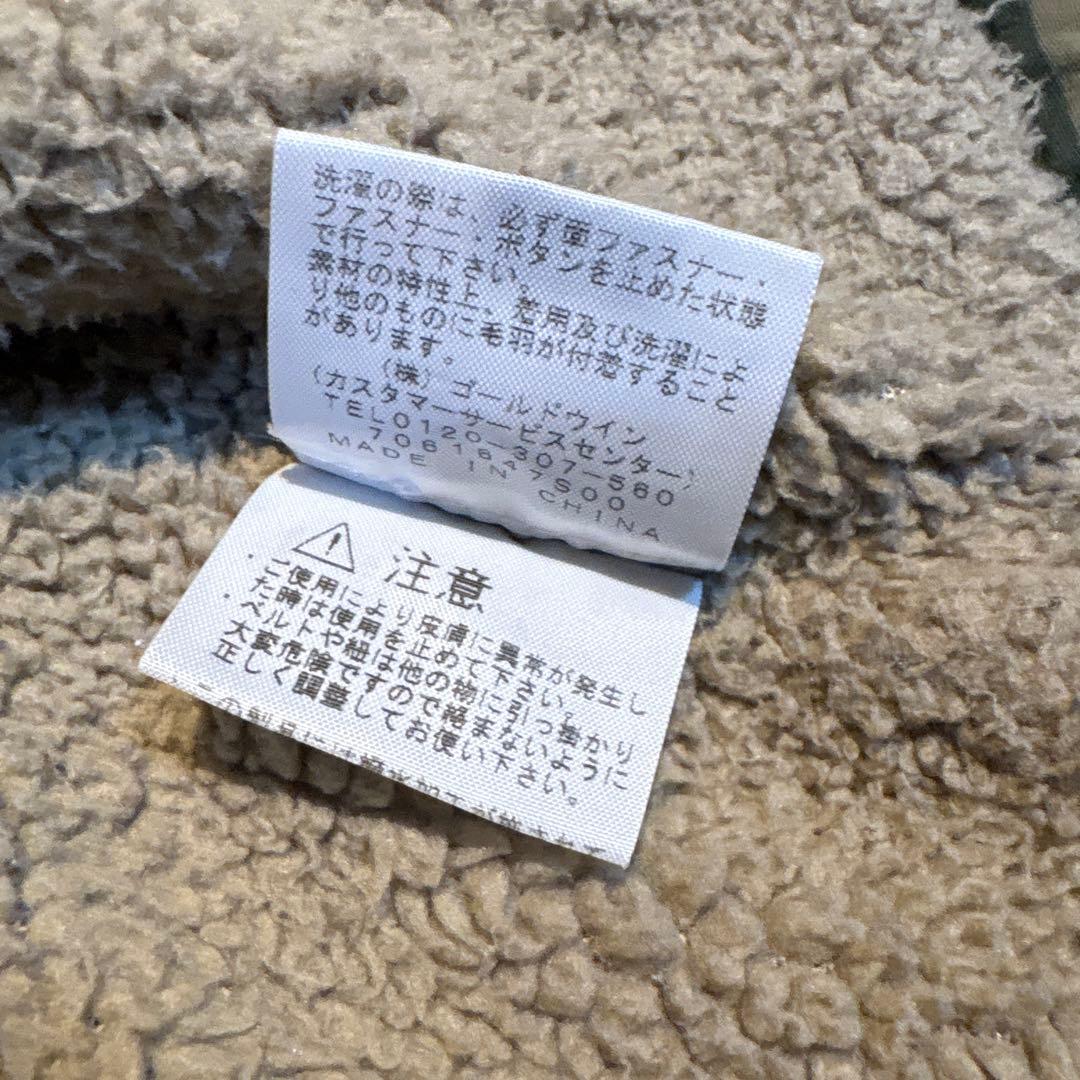 洗濯の際は、必ず面ファスナー、
ファスナー、ボタンを止めた状態
で行って下さい。
素材の特性上、着用及び洗濯によ
り他のものに毛羽が付着すること
があります。
(株)ゴールドウイン
(カスタマーサービスセンター)
TEL0120-307-560
MADE IN CHINA
注意
・ご使用により皮膚に異常が発生し
た時は使用を止めて下さい。
・ベルトや紐は他の物に引っ掛かり
大変危険ですので絡まないように
正しく調整してお使い下さい。